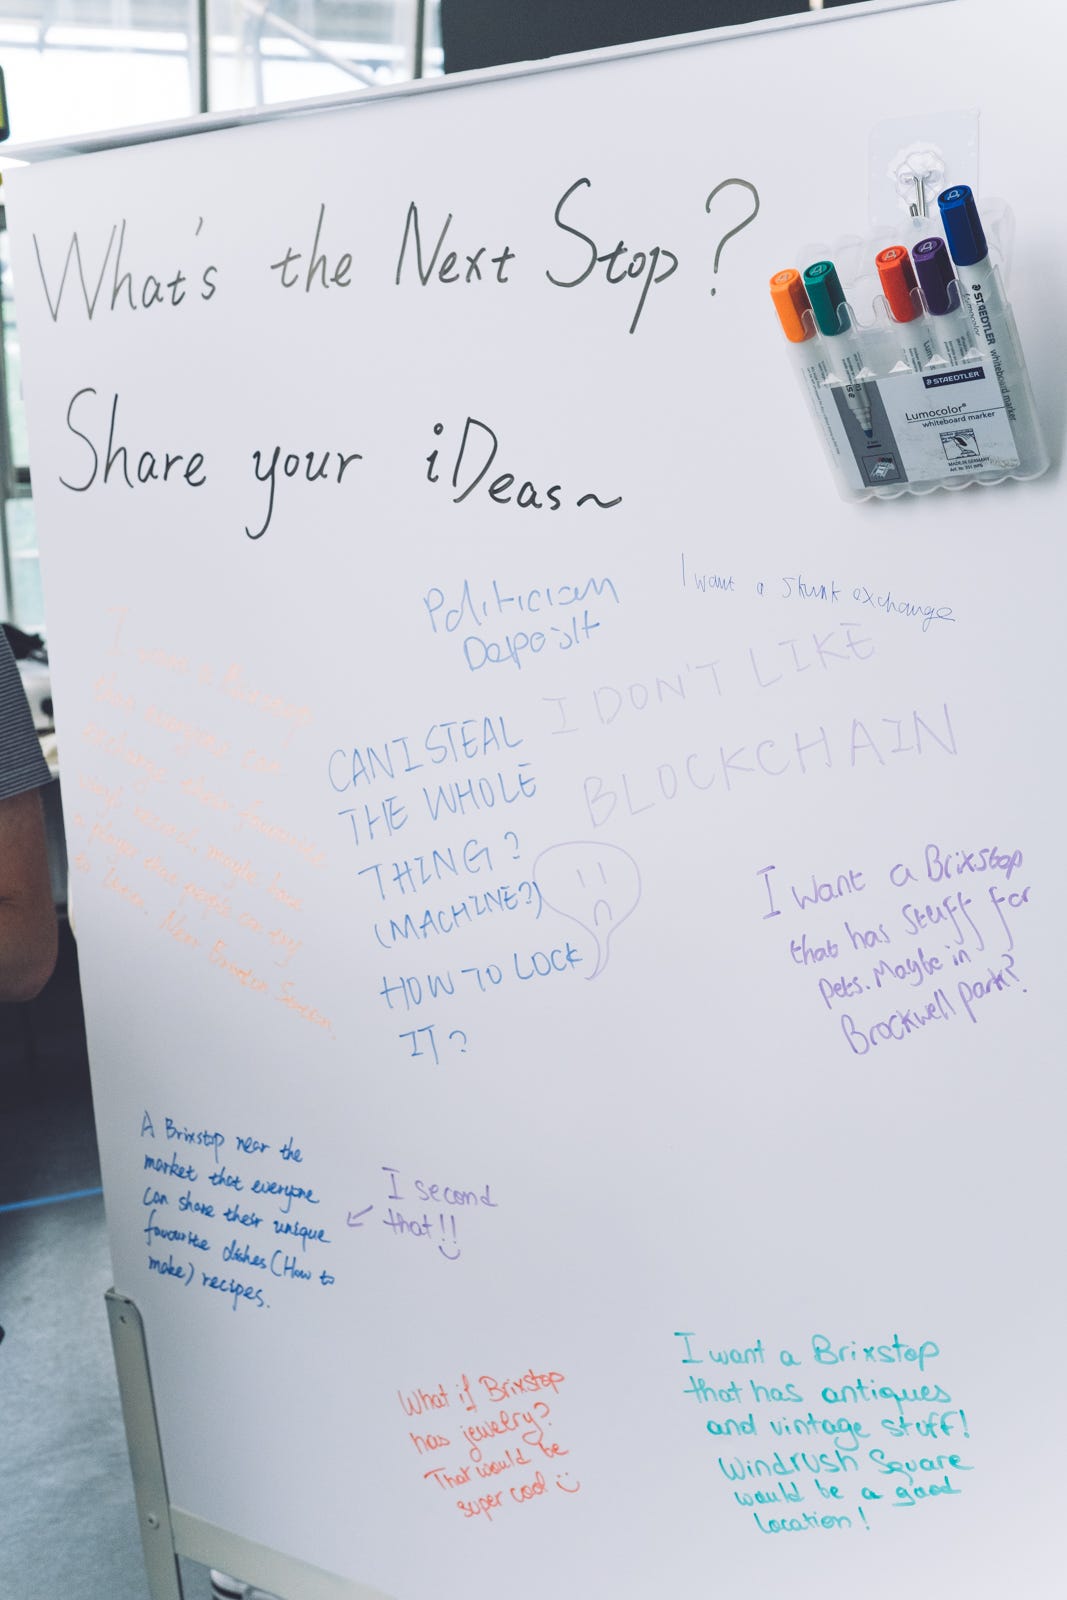 What's the Next Stop?
Share your iDeas~
STAEDTLER
Lumocolor
whiteboard marker
STAEDTLER
Lumocolor®
whiteboard marker
MADE IN GERMANY
Politician
Deposit
I want a skunk exchange
I DON'T LIKE
BLOCKCHAIN
I want a Brixstop
that everyone can
exchange their favourite
vinyl record, maybe have
a player that people can try
to listen. Near Brixton Station
CAN I STEAL
THE WHOLE
THING?
(MACHINE?)
HOW TO LOCK
IT?
I want a Brixstop
that has stuff for
pets. Maybe in
Brockwell park?
A Brixstop near the
market that everyone
can share their unique
favourite dishes (How to
make) recipes.
I second
that!!
What if Brixstop
has jewelry?
That would be
super cool
I want a Brixstop
that has antiques
and vintage stuff!
Windrush Square
would be a good
location!